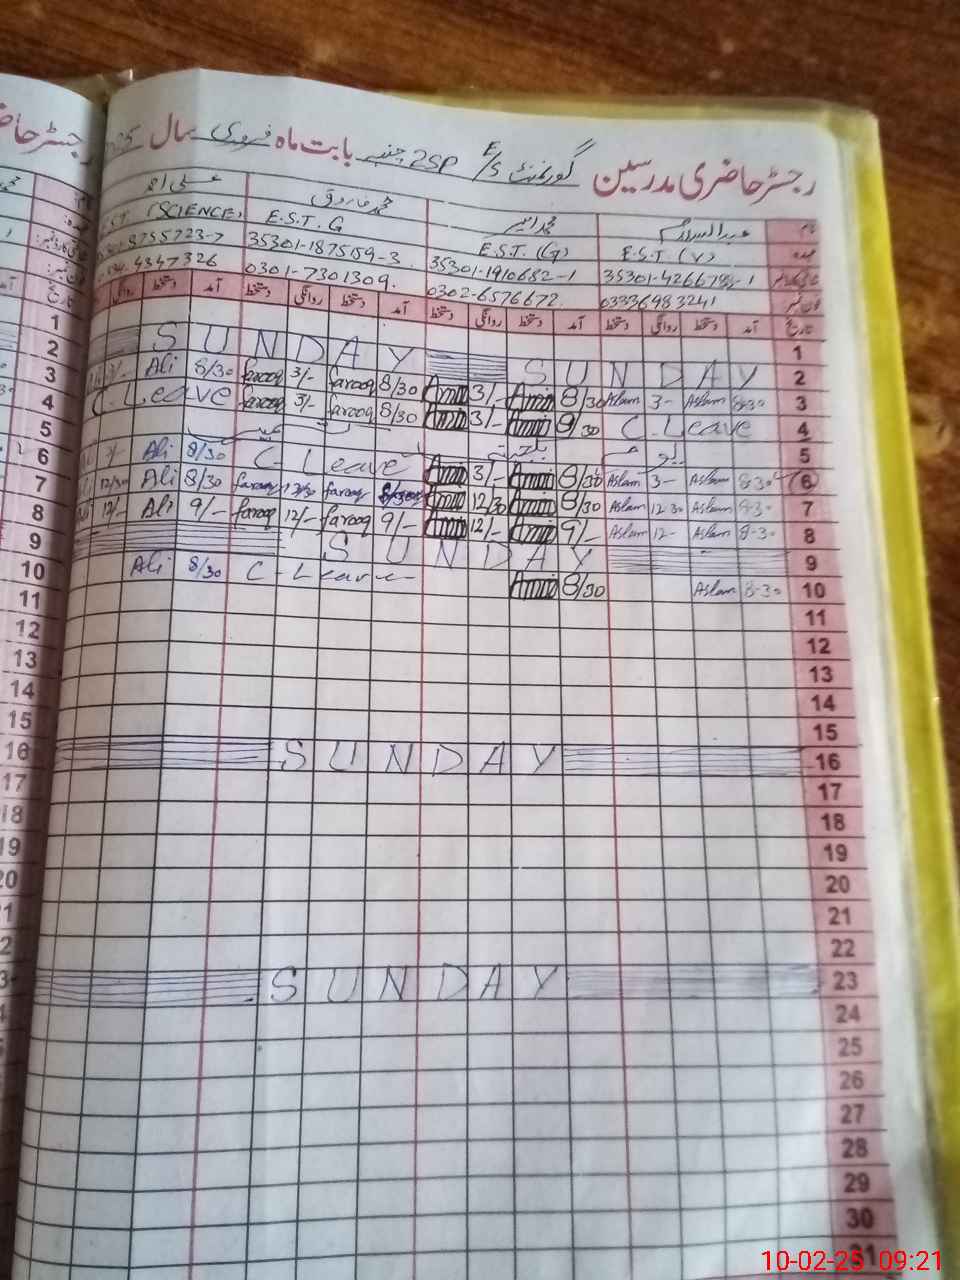 رجسٹر حاضری مدرسین گورنمنٹ E/S 25P بابت ماہ فروری سال
نام عبدالسلام محمد امین محمد فاروق علی احمد
عہدہ E.S.T (V) E.S.T. (G) E.S.T. G (SCIENCE)
35301-4266798-1 35301-1910682-1 35301-1875159-3 8755723-7
03336983241 0302-6576672 0301-7301309 4347326
تاریخ آمد دستخط روانگی دستخط آمد دستخط روانگی دستخط آمد دستخط روانگی دستخط آمد دستخط روانگی
1
2 SUNDAY SUNDAY
3 8-30 Aslam 3- Aslam 8/30 Amin 3/- Amin 8/30 farooq 3/- farooq 8/30 Ali
4 C-Leave 8/30 Amin 3/- Amin 8/30 farooq 3/- farooq C. Leave
5 یوم یکجہتی کشمیر
6 8-30 Aslam 3- Aslam 8/30 Amin 3/- Amin C-Leave 8/30 Ali
7 8-30 Aslam 12-30 Aslam 8/30 Amin 12/30 Amin 8/30 farooq 12/30 farooq 8/30 Ali 12/30
8 8-30 Aslam 12- Aslam 9/- Amin 12/- Amin 9/- farooq 12/- farooq 9/- Ali 12/-
9 SUNDAY
10 8-30 Aslam 8/30 Amin C-Leave 8/30 Ali
11
12
13
14
15
16 SUNDAY
17
18
19
20
21
22
23 SUNDAY
24
25
26
27
28
29
30
31
10-02-25 09:21